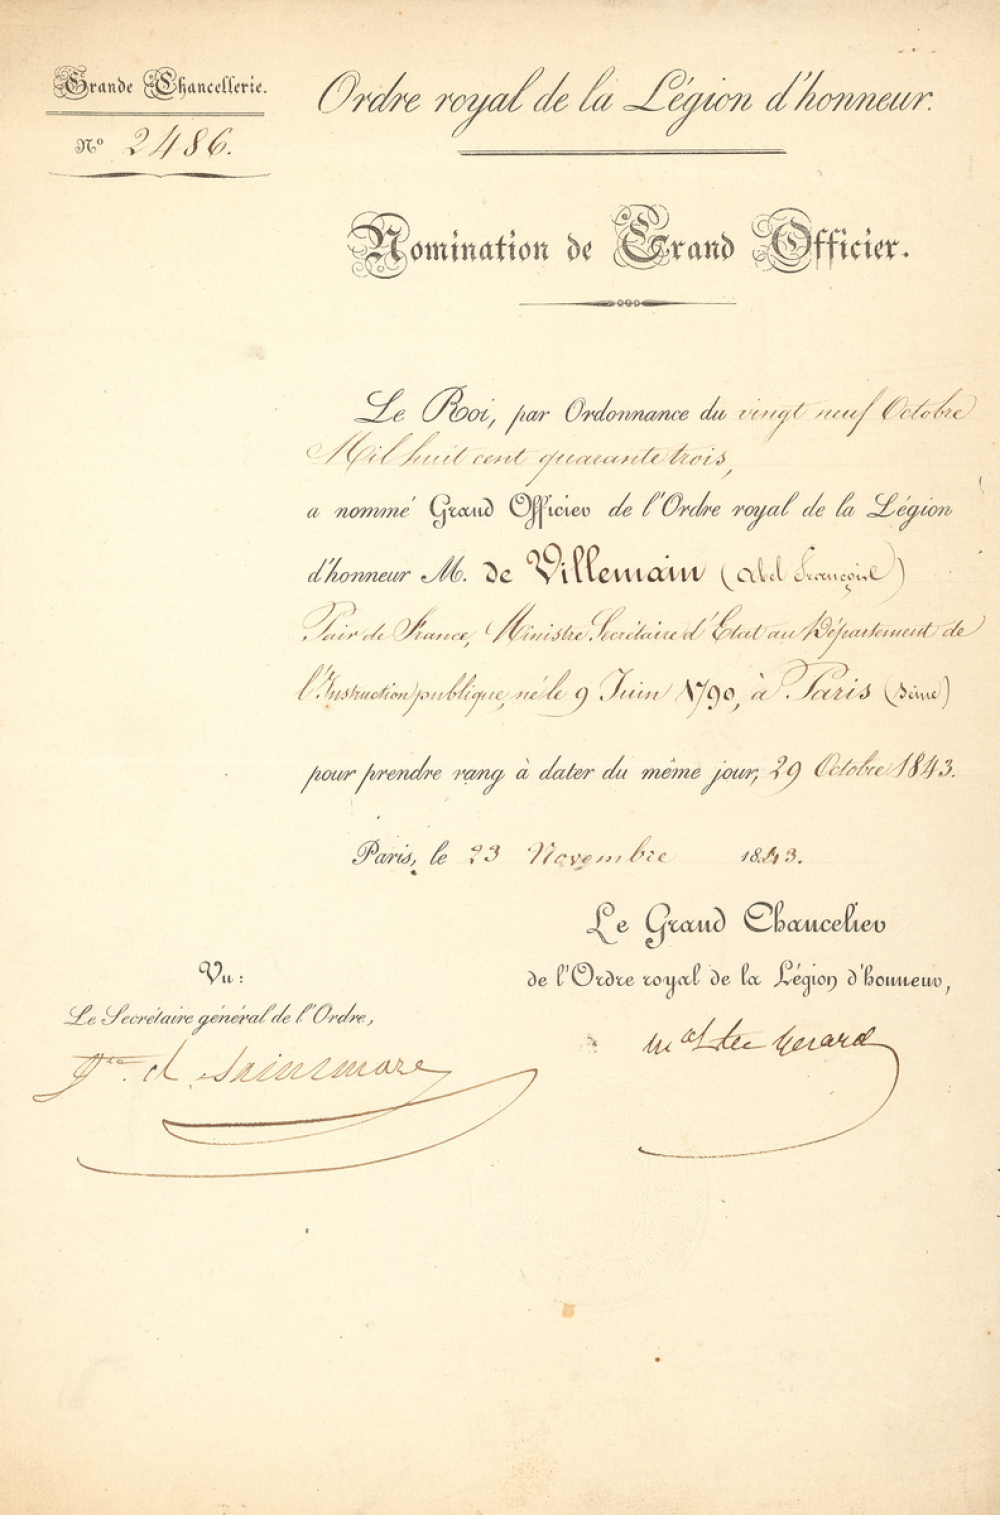 Grande Chancellerie.
Nº 2486.
Ordre royal de la Légion d'honneur.
Nomination de Grand Officier.
Le Roi, par Ordonnance du vingt neuf Octobre
Mil huit cent quarante trois,
a nommé Grand Officier de l'Ordre royal de la Légion
d'honneur M. de Villemain (Abel François)
Pair de France, Ministre Secrétaire d'Etat au Département de
l'Instruction publique, né le 9 Juin 1790, à Paris (Seine)
pour prendre rang à dater du même jour, 29 Octobre 1843.
Paris, le 23 Novembre 1843.
Le Grand Chancelier
de l'Ordre royal de la Légion d'honneur,
Mal Cte Gerard
Vu:
Le Secrétaire général de l'Ordre,
Vte de Saint mars